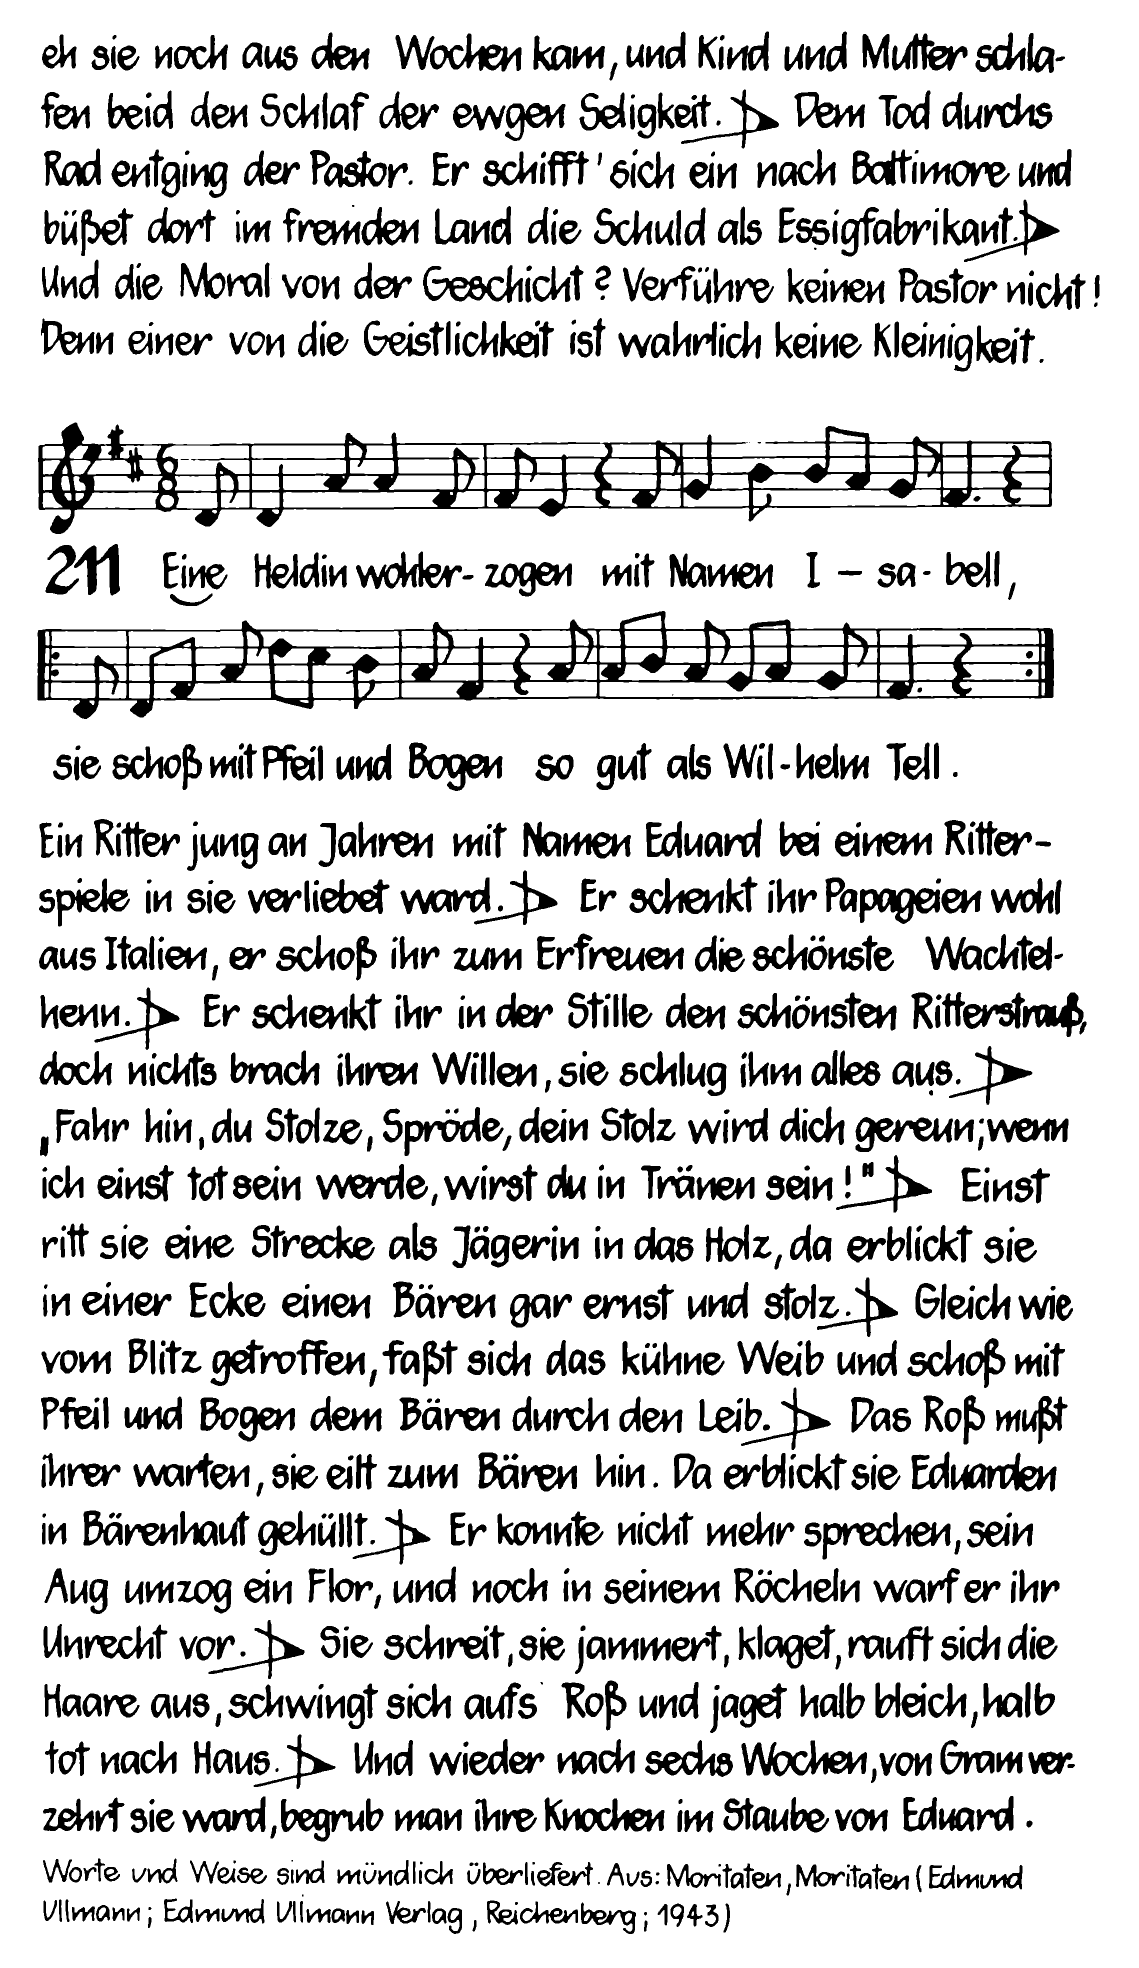 eh sie noch aus den Wochen kam, und Kind und Mutter schla-
fen beid den Schlaf der ewgen Seligkeit. Dem Tod durchs
Rad entging der Pastor. Er schifft' sich ein nach Baltimore und
büßet dort im fremden Land die Schuld als Essigfabrikant.
Und die Moral von der Geschicht? Verführe keinen Pastor nicht!
Denn einer von die Geistlichkeit ist wahrlich keine Kleinigkeit.
6
8
211 Eine Heldin wohler-zogen mit Namen I - sa-bell,
sie schoß mit Pfeil und Bogen so gut als Wil-helm Tell.
Ein Ritter jung an Jahren mit Namen Eduard bei einem Ritter-
spiele in sie verliebet ward. Er schenkt ihr Papageien wohl
aus Italien, er schoß ihr zum Erfreuen die schönste Wachtel-
henn. Er schenkt ihr in der Stille den schönsten Ritterstrauß,
doch nichts brach ihren Willen, sie schlug ihm alles aus.
„Fahr hin, du Stolze, Spröde, dein Stolz wird dich gereun; wenn
ich einst tot sein werde, wirst du in Tränen sein!" Einst
ritt sie eine Strecke als Jägerin in das Holz, da erblickt sie
in einer Ecke einen Bären gar ernst und stolz. Gleich wie
vom Blitz getroffen, faßt sich das kühne Weib und schoß mit
Pfeil und Bogen dem Bären durch den Leib. Das Roß mußt
ihrer warten, sie eilt zum Bären hin. Da erblickt sie Eduarden
in Bärenhaut gehüllt. Er konnte nicht mehr sprechen, sein
Aug umzog ein Flor, und noch in seinem Röcheln warf er ihr
Unrecht vor. Sie schreit, sie jammert, klaget, rauft sich die
Haare aus, schwingt sich aufs Roß und jaget halb bleich, halb
tot nach Haus. Und wieder nach sechs Wochen, von Gram ver-
zehrt sie ward, begrub man ihre Knochen im Staube von Eduard.
Worte und Weise sind mündlich überliefert. Aus: Moritaten, Moritaten (Edmund
Ullmann; Edmund Ullmann Verlag, Reichenberg; 1943)